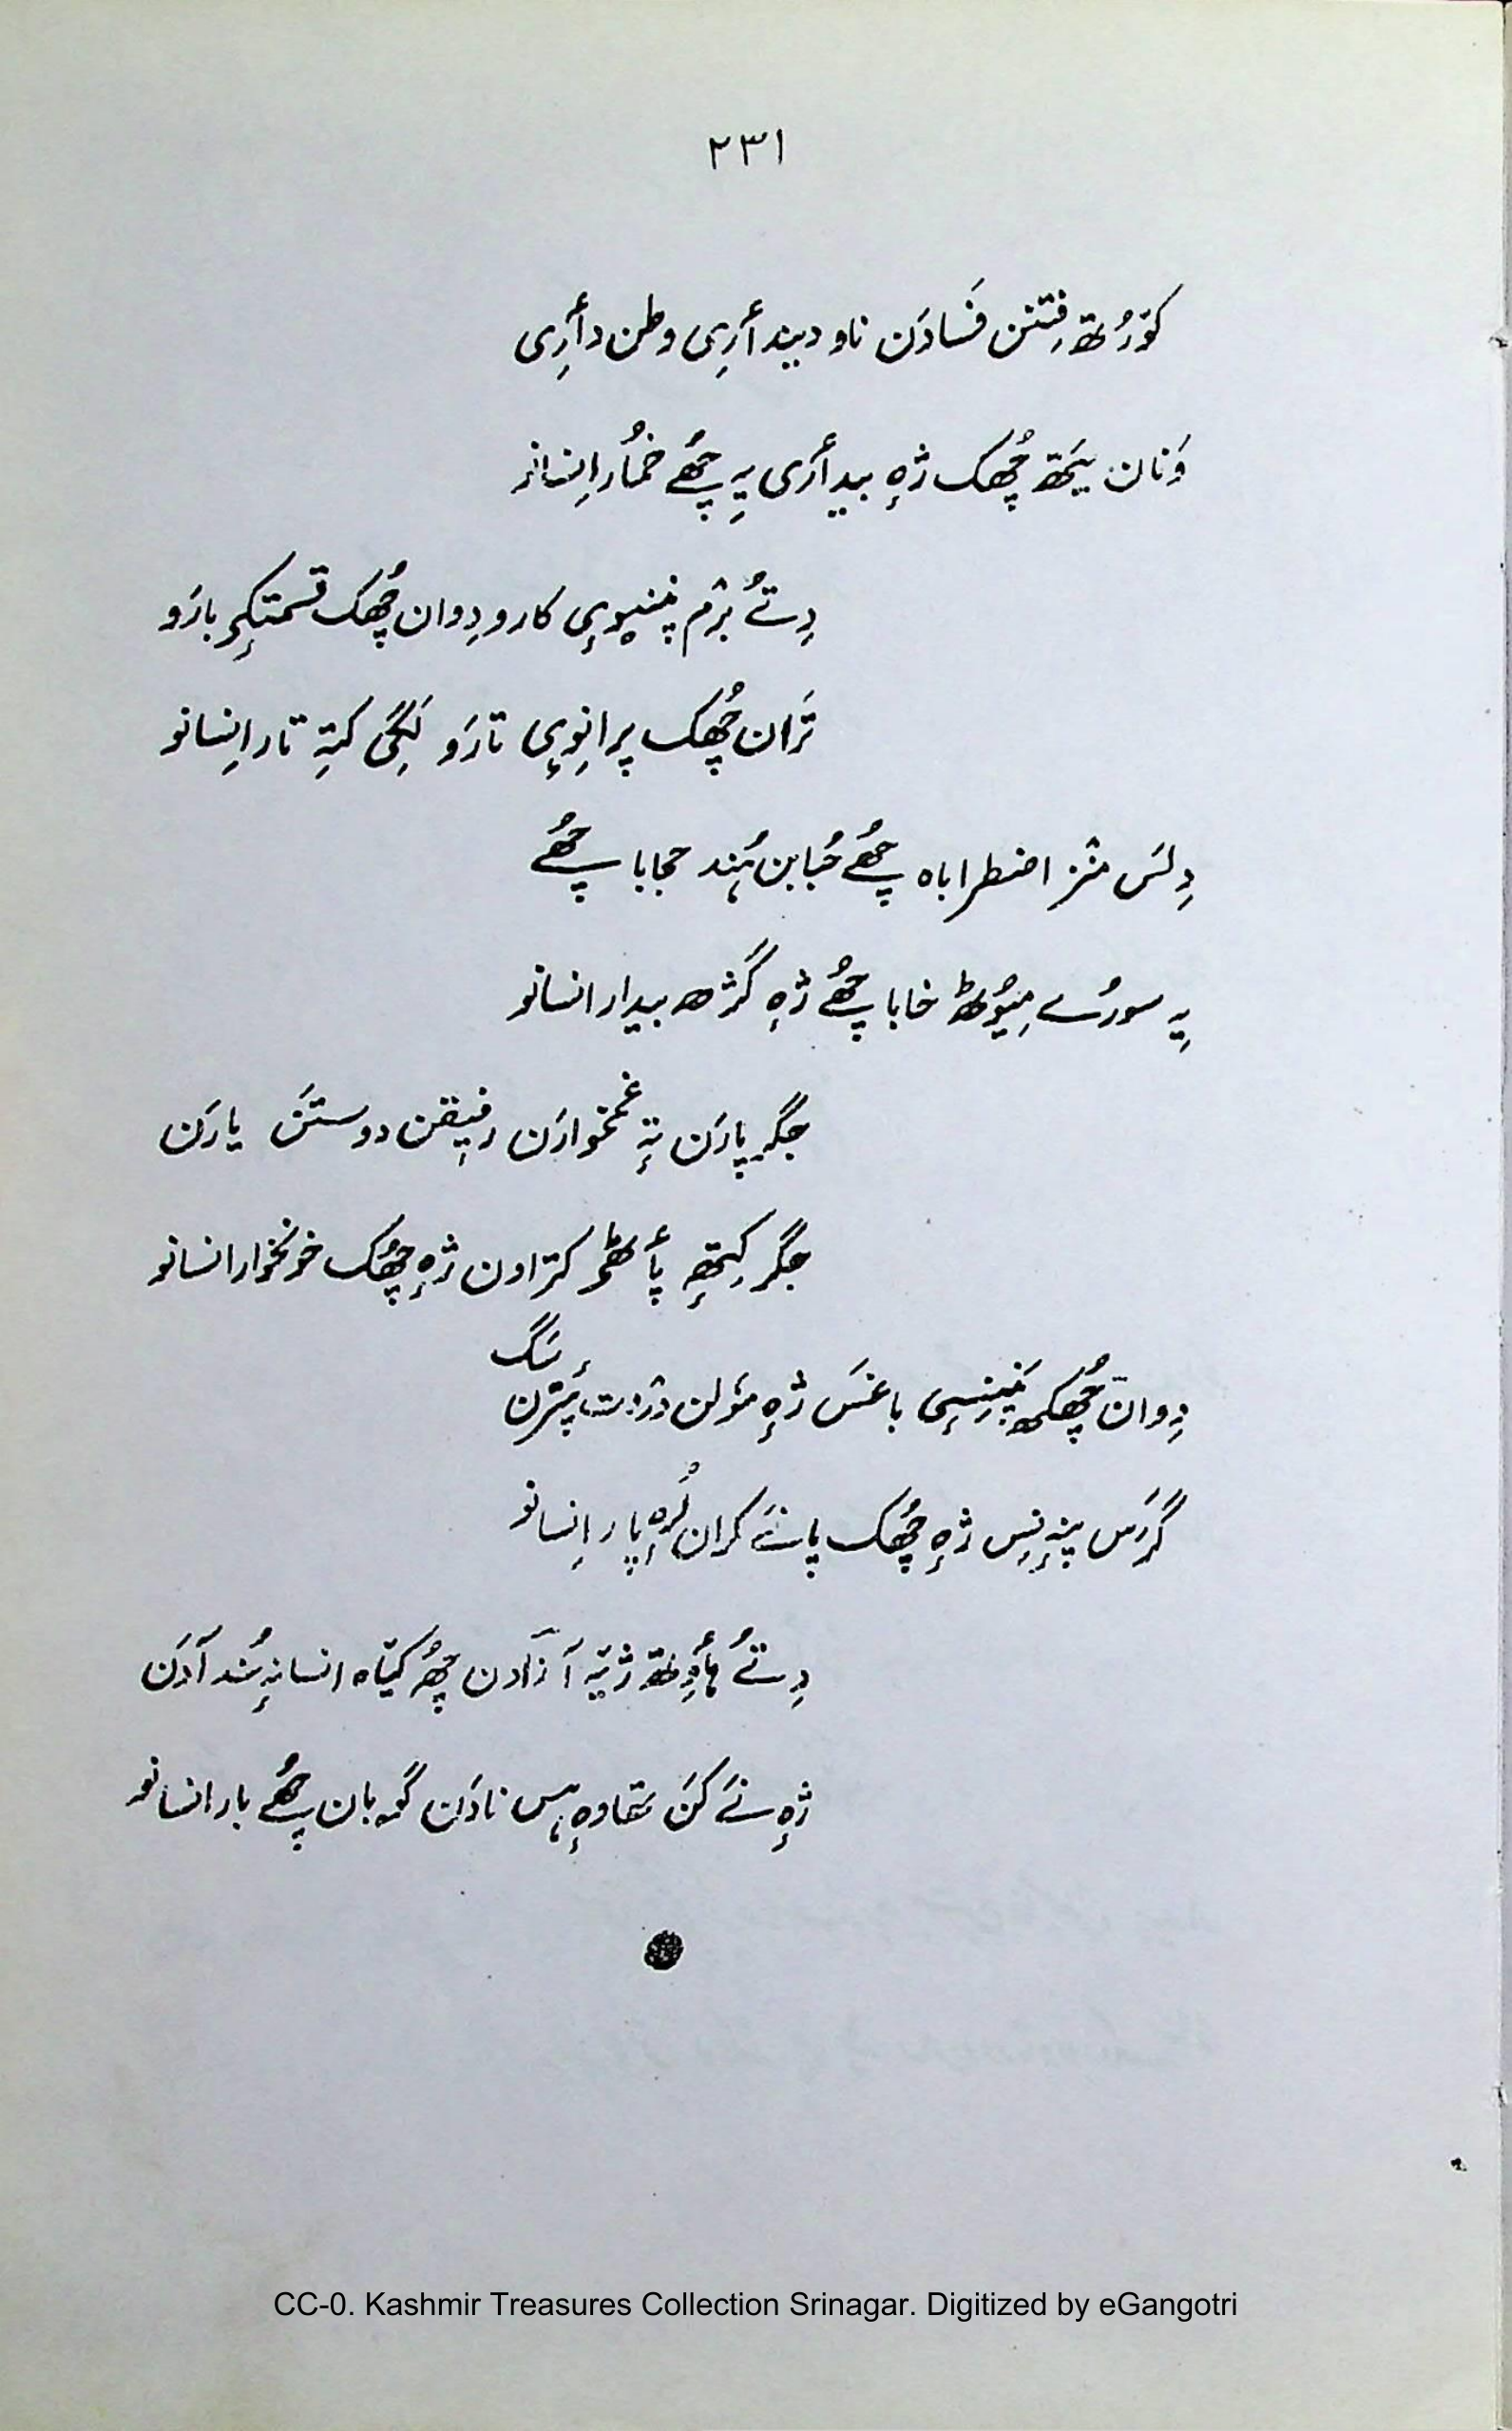 ۲۳۱
کوٚرُتھ فِتنن فَسادَن ناو دیندأرِی وطن دأرِی
وَنان یَتھ چُھک ژٕہ بیدأری یِہ چُھے خمُار اِنسانو
دِتُے بژم پننِوٕی کارو دِوان چُھک قسمتٕکۍ بارَو
تَران چُھک پرانِوٕی تارَو لَگی کتہِ تار اِنسانو
دِلَس منز اضطراباہ چُھے حُبابن ہُند حجابا چُھے
یِہ سورُے مِیوٗٹھ خابا چُھے ژٕہ گژھ بیدار انسانو
جگرپارَن تہٕ غمخوارَن رفیٖقن دوستَن یارَن
جگر کِتھٕہ پأٹھۍ کتراون ژٕہ چُھک خونخوار انسانو
دِوان چُھکھ پَننِسٕی باغَس ژٕہ مۄلن دژٕت پَترن سَگ
گَرَس پنہٕ نِس ژٕہ چُھک پانَے کران لُرٕہ پار اِنسانو
دِتُے ہأوِتھ ژیٚتہِ آزادن چُھ کیٚتاہ انسانہٕ ہُند آدَن
ژٕہ نَے کَن تھاوٕہ ہس نادَن گۄبان چُھے بار انسانو
CC-0. Kashmir Treasures Collection Srinagar. Digitized by eGangotri